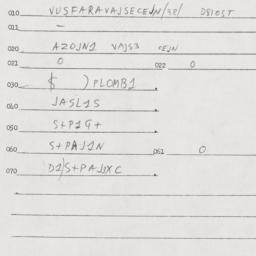 010 VUSFARAVAJSECEJN/38/ DSIOST
011 –
020 AZOJN1 VAJS3 CEJN
021 0 022 0
030 $ ) PLOMB1
040 JASL1S
050 S+P1G+
060 S+PAJ1N 061 0
070 D1/S+PAJXC